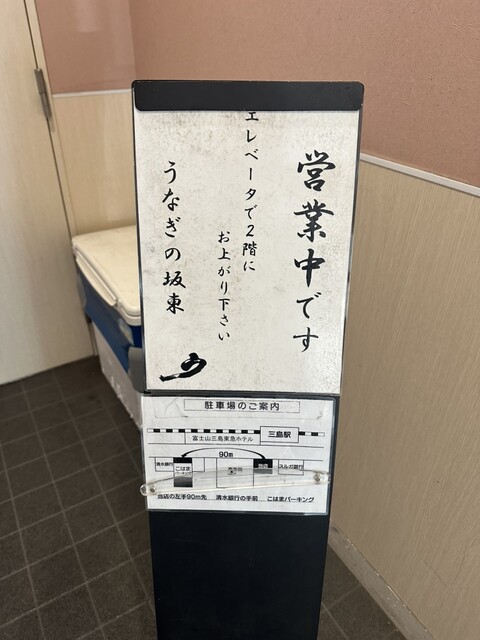 営業中です
エレベータで2階に
お上がり下さい
うなぎの坂東
う
駐車場のご案内
三島駅
富士山三島東急ホテル
90m
清水銀行
こはま
パーキング
当店
スルガ銀行
当店の左手90m先 清水銀行の手前 こはまパーキング